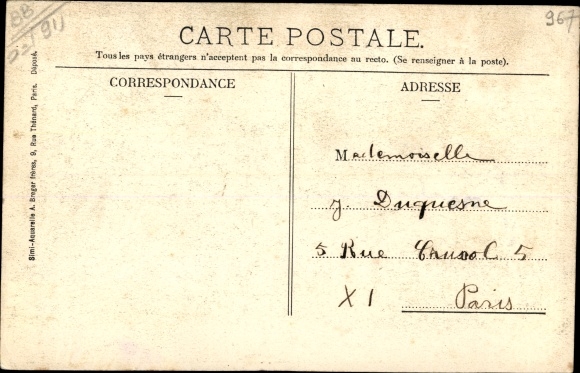 BB
911
967
CARTE POSTALE.
Tous les pays étrangers n'acceptent pas la correspondance au recto. (Se renseigner à la poste).
CORRESPONDANCE
ADRESSE
Mademoiselle
J. Duquesne
5 Rue Crussol 5
XI Paris
Simi-Aquarelle A. Breger frères, 9, Rue Thénard, Paris. Déposé.